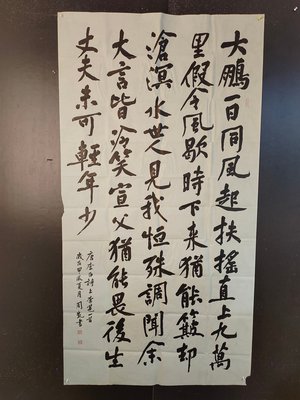 大鵬一日同風起扶搖直上九萬
里假令風歇時下来猶能簸却
滄溟水世人見我恒殊調聞余
大言皆冷笑宣父猶能畏後生
丈夫未可輕年少
唐李白詩上李邕一首
歲在甲辰夏月周書